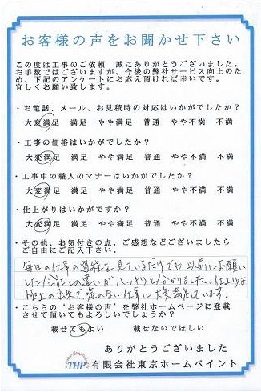 お客様の声をお聞かせ下さい
この度は工事のご依頼、誠にありがとうございました。
お手数ではございますが、今後の弊社サービス向上のため、
下記のアンケートにお答え頂ければ幸いです。
宜しくお願い致します。
・お電話、メール、お見積時の対応はいかがでしたか?
大変満足 満足 やや満足 普通 やや不満 不満
・工事の価格はいかがでしたか?
大変満足 満足 やや満足 普通 やや不満 不満
・工事中の職人のマナーはいかがでしたか?
大変満足 満足 やや満足 普通 やや不満 不満
・仕上がりはいかがですか?
大変満足 満足 やや満足 普通 やや不満 不満
・その他、お気付きの点、ご感想などございましたら
ご自由にご記入下さい。
毎日の仕事の
・こちらの“お客様の声”を弊社ホームページに掲載
させて頂いてもよろしいでしょうか?
載せてもよい 載せないでほしい
ありがとうございました
THP 有限会社東京ホームペイント